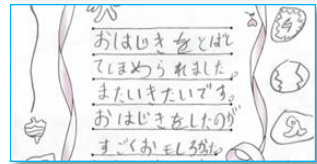 おはじきをとばし
てしまめられました。
またいきたいです。
おはじきをしたのが
すごくおモしろかた。